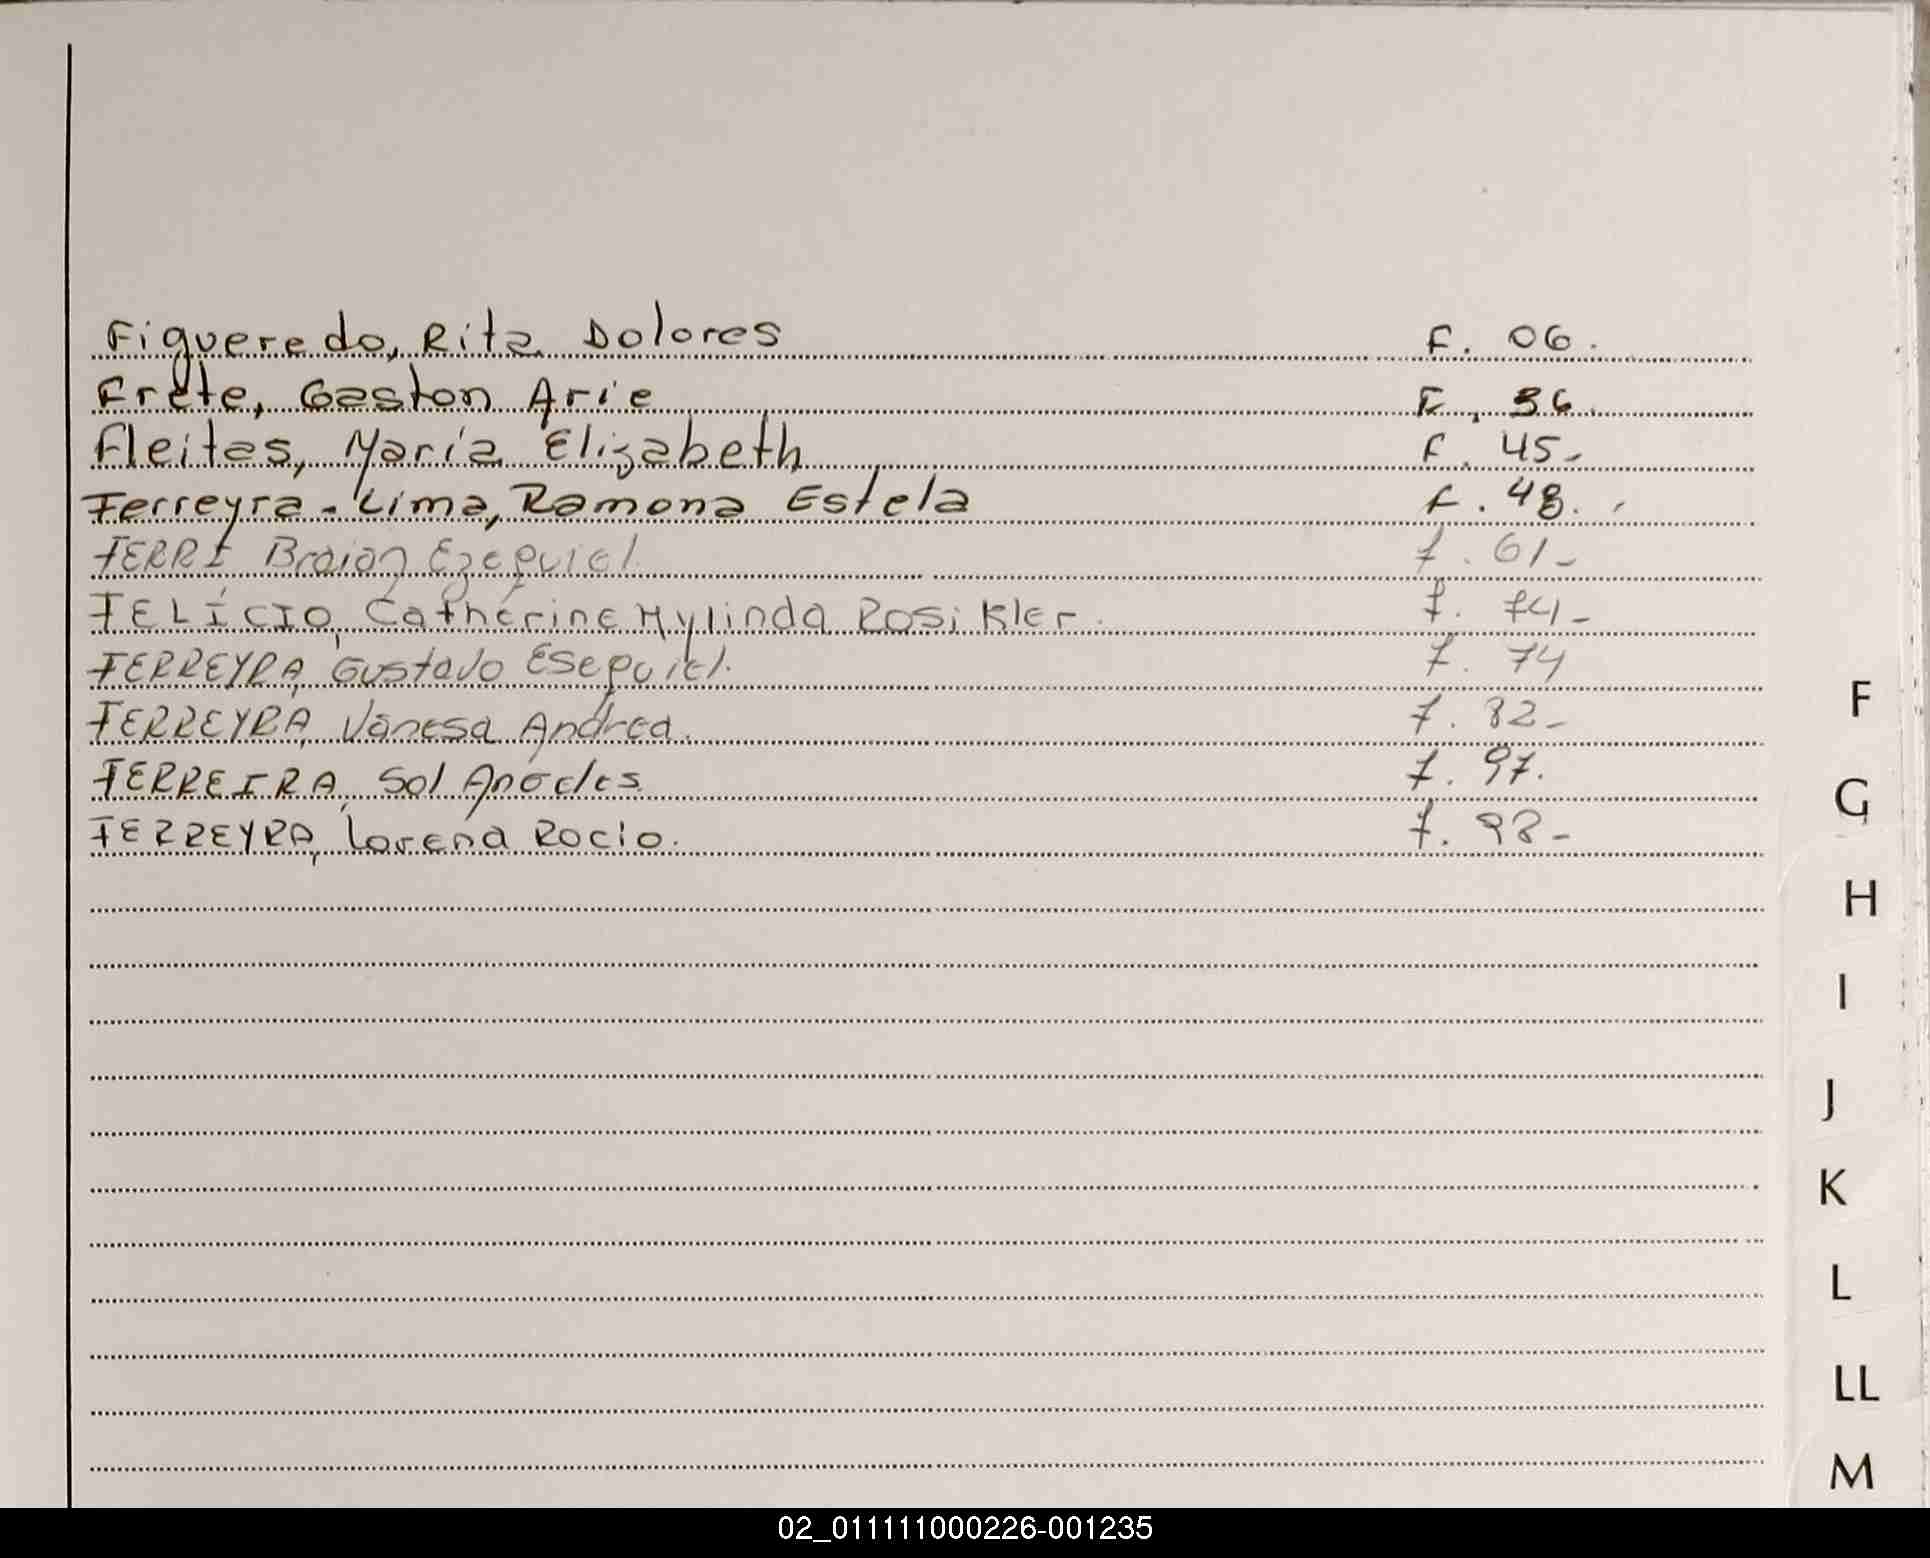 Figueredo, Rita Dolores F. 06.
Frete, Gaston Arie F. 36.
Fleitas, María Elizabeth F. 45-
Ferreyra-Lima, Ramona Estela F. 48.
FERRÍ Braian Ezequiel f. 61-
FELÍCIO, Catherine Mylinda Rosi Kler. f. 74-
FERREYRA, Gustavo Esequiel. f. 74
FERREYRA, Vanesa Andrea. f. 82-
FERREIRA, Sol f. 97.
FERREYRA, Lorena Rocio. f. 98-
F
G
H
I
J
K
L
LL
M
02_011111000226-001235